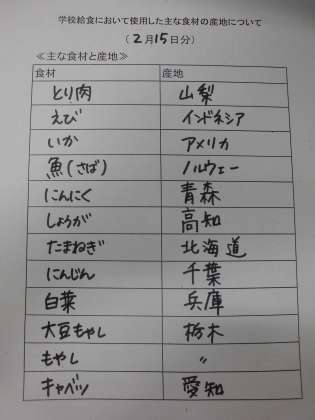 学校給食において使用した主な食材の産地について
（2月15日分）
≪主な食材と産地≫
食材 産地
とり肉 山梨
えび インドネシア
いか アメリカ
魚(さば) ノルウェー
にんにく 青森
しょうが 高知
たまねぎ 北海道
にんじん 千葉
白菜 兵庫
大豆もやし 栃木
もやし 〃
キャベツ 愛知